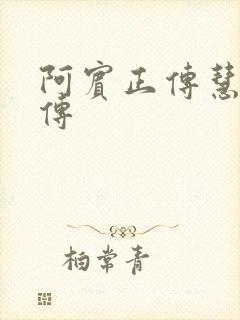 阿賓正傳慧
傳
柏常青